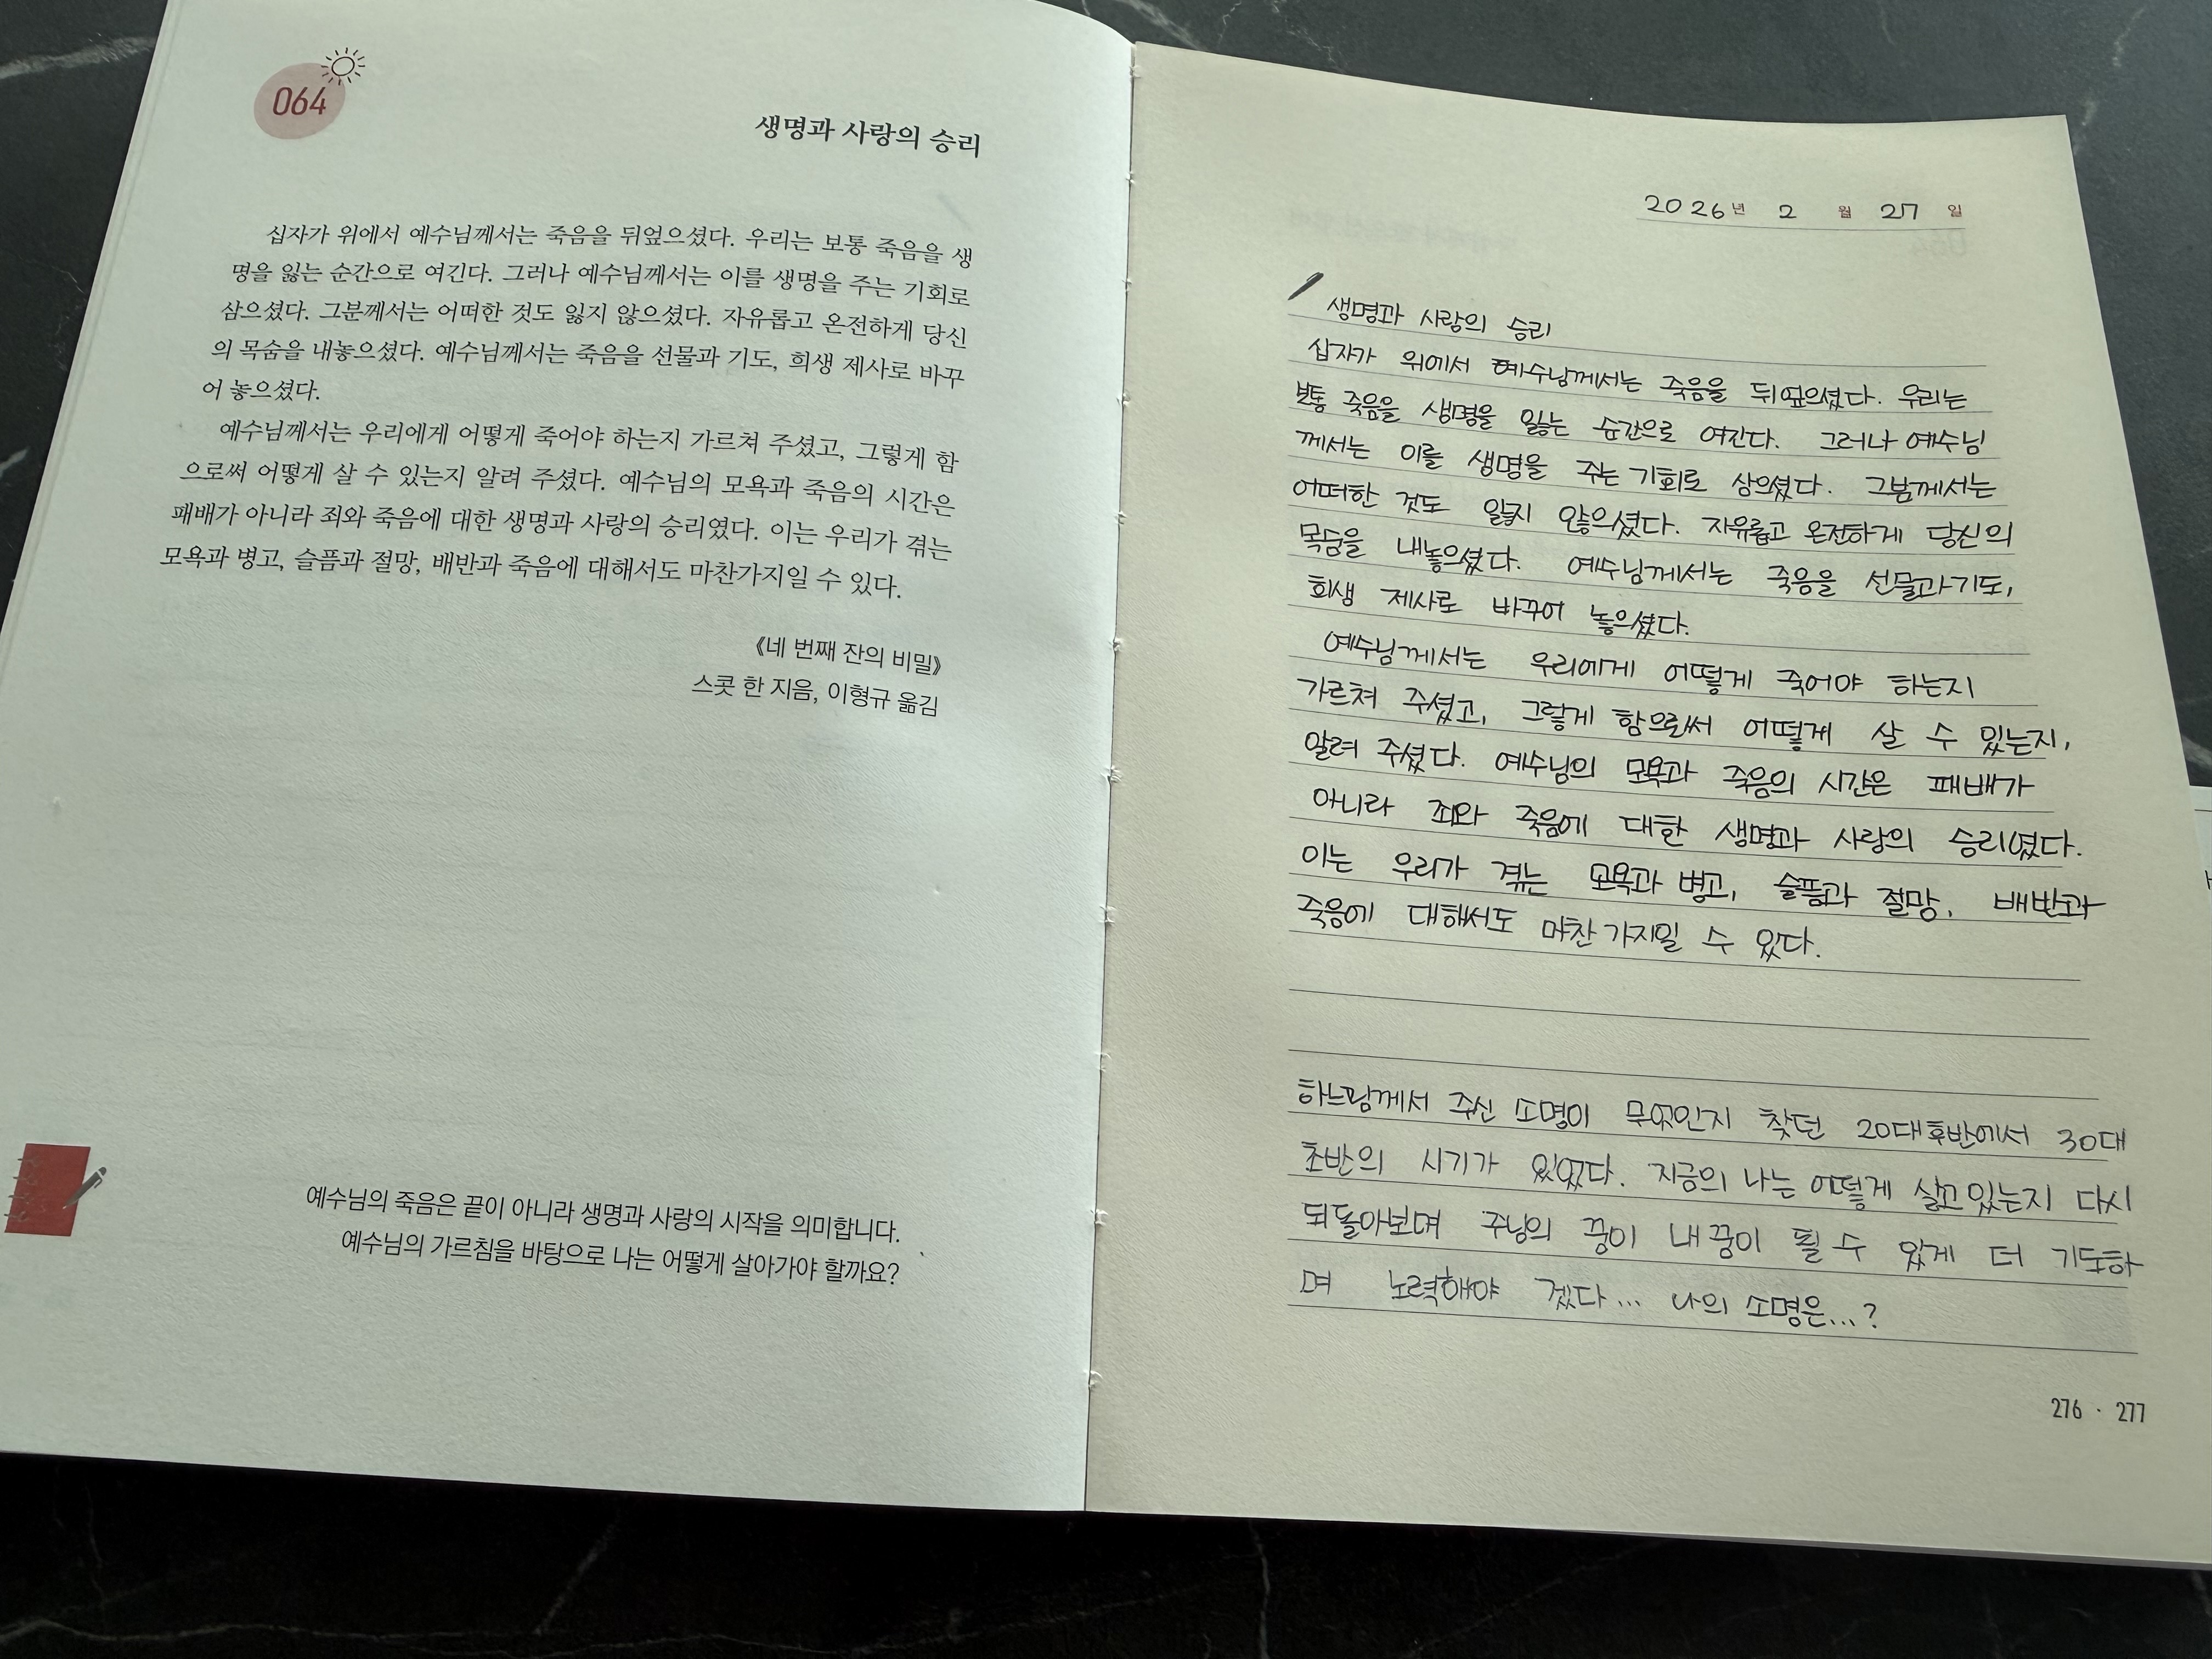 064
생명과 사랑의 승리
십자가 위에서 예수님께서는 죽음을 뒤엎으셨다. 우리는 보통 죽음을 생
명을 잃는 순간으로 여긴다. 그러나 예수님께서는 이를 생명을 주는 기회로
삼으셨다. 그분께서는 어떠한 것도 잃지 않으셨다. 자유롭고 온전하게 당신
의 목숨을 내놓으셨다. 예수님께서는 죽음을 선물과 기도, 희생 제사로 바꾸
어 놓으셨다.
예수님께서는 우리에게 어떻게 죽어야 하는지 가르쳐 주셨고, 그렇게 함
으로써 어떻게 살 수 있는지 알려 주셨다. 예수님의 모욕과 죽음의 시간은
패배가 아니라 죄와 죽음에 대한 생명과 사랑의 승리였다. 이는 우리가 겪는
모욕과 병고, 슬픔과 절망, 배반과 죽음에 대해서도 마찬가지일 수 있다.
《네 번째 잔의 비밀》
스콧 한 지음, 이형규 옮김
예수님의 죽음은 끝이 아니라 생명과 사랑의 시작을 의미합니다.
예수님의 가르침을 바탕으로 나는 어떻게 살아가야 할까요?
2026년 2 월 27 일
생명과 사랑의 승리
십자가 위에서 예수님께서는 죽음을 뒤엎으셨다. 우리는
보통 죽음을 생명을 잃는 순간으로 여긴다. 그러나 예수님
께서는 이를 생명을 주는 기회로 삼으셨다. 그분께서는
어떠한 것도 잃지 않으셨다. 자유롭고 온전하게 당신의
목숨을 내놓으셨다. 예수님께서는 죽음을 선물과 기도,
희생 제사로 바꾸어 놓으셨다.
예수님께서는 우리에게 어떻게 죽어야 하는지
가르쳐 주셨고, 그렇게 함으로써 어떻게 살 수 있는지,
알려 주셨다. 예수님의 모욕과 죽음의 시간은 패배가
아니라 죄와 죽음에 대한 생명과 사랑의 승리였다.
이는 우리가 겪는 모욕과 병고, 슬픔과 절망, 배반과
죽음에 대해서도 마찬가지일 수 있다.
하느님께서 주신 소명이 무엇인지 찾던 20대후반에서 30대
초반의 시기가 있었다. 지금의 나는 어떻게 살고 있는지 다시
되돌아보며 주님의 꿈이 내 꿈이 될 수 있게 더 기도하
며 노력해야 겠다... 나의 소명은...?
276 · 277